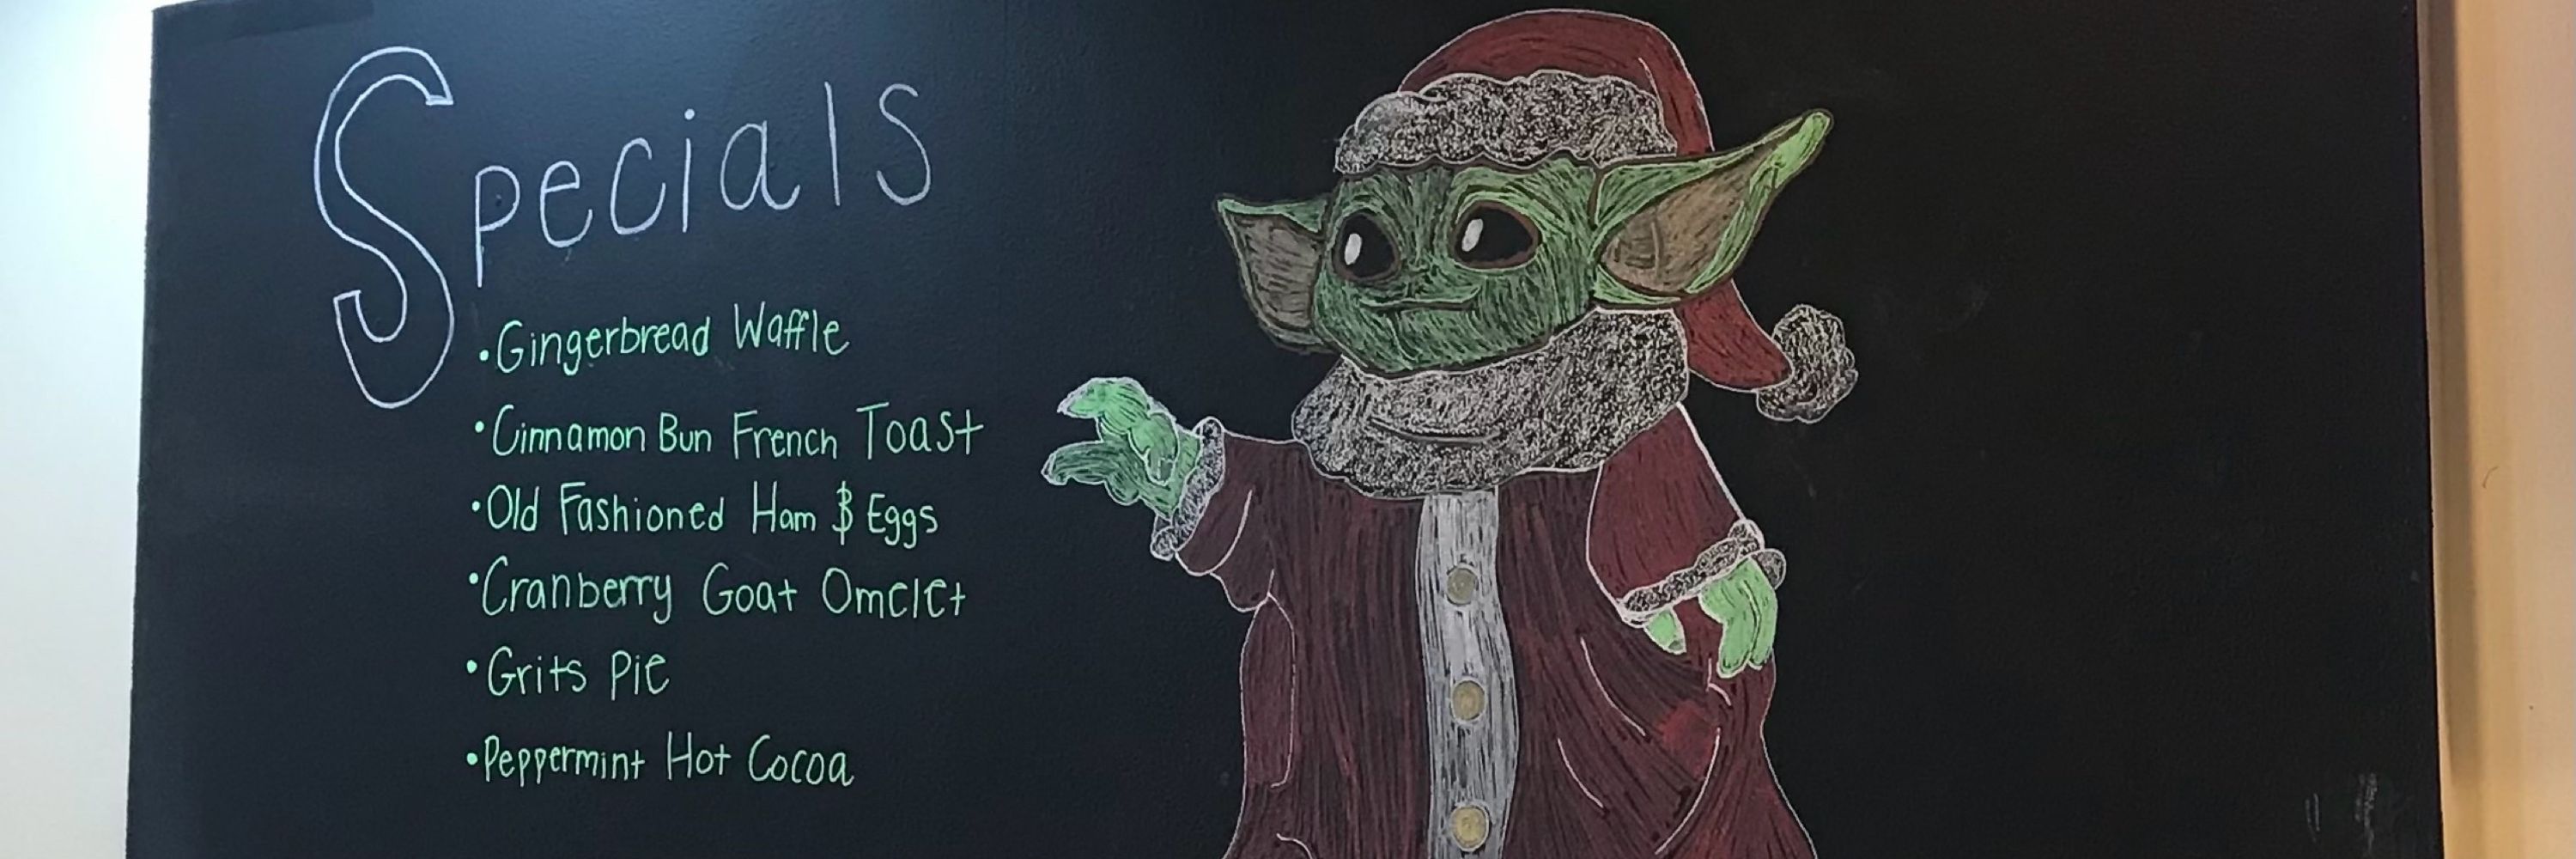 Specials
• Gingerbread Waffle
• Cinnamon Bun French Toast
• Old Fashioned Ham & Eggs
• Cranberry Goat Omelet
• Grits Pie
• Peppermint Hot Cocoa